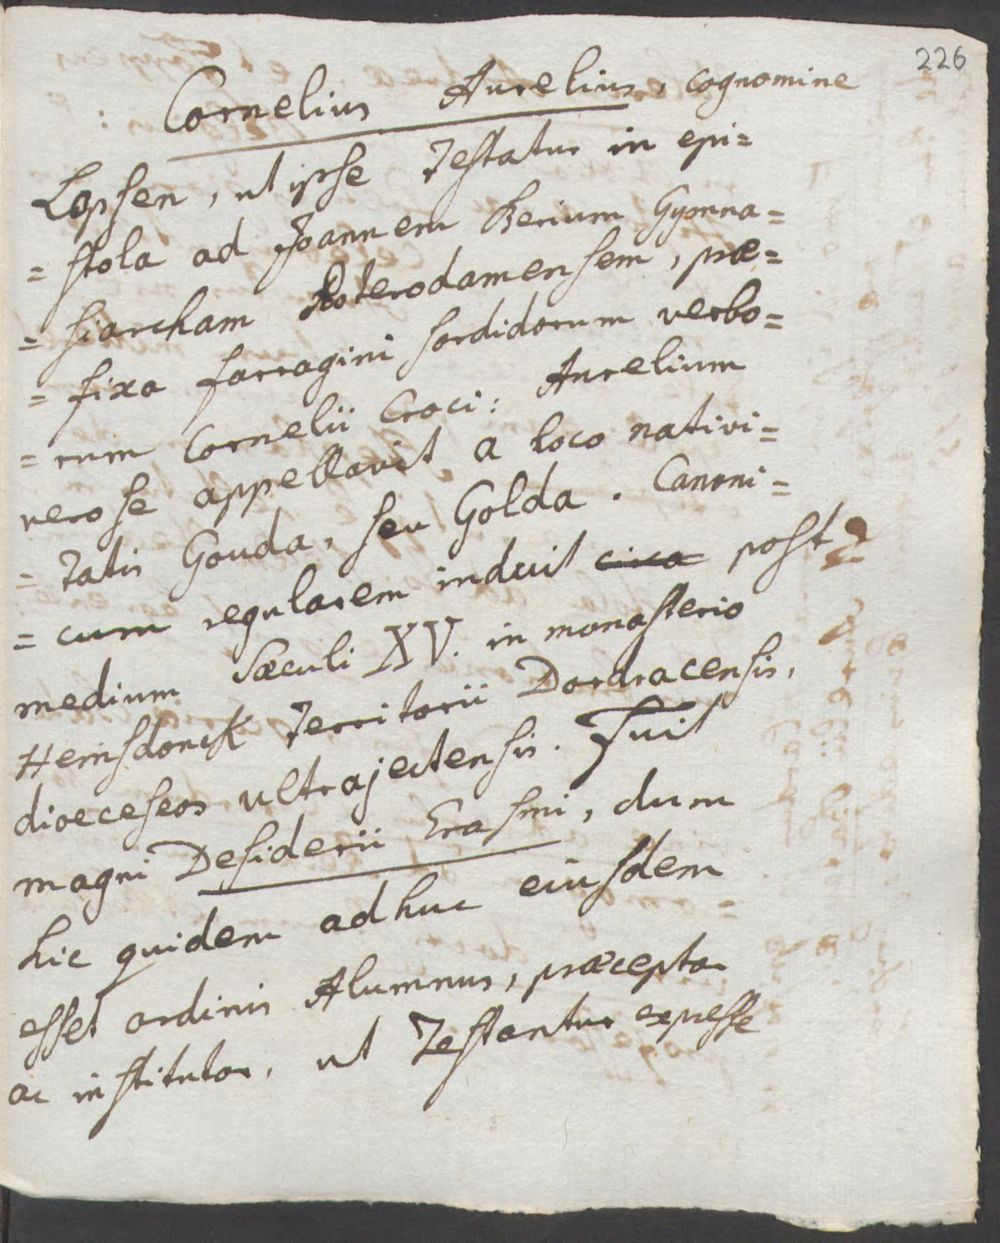 226
Cornelius Aurelius, cognomine
Lopsen, ut ipse Testatur in epi=
=stola ad Joannem Berium Gymna=
=siarcham Roterodamensem, præ=
=fixa farragini sordidorum verbo=
=rum Cornelii Croci: Aurelium
vero se appellavit a loco nativi=
=tatis Gouda, seu Golda. Canoni=
=cum regularem induit circa post
medium Sæculi XV. in monasterio
Hemsdonck Territorii Dordracensis,
dioeceseos ultrajectensis. Fuit
magni Desiderii Erasmi, dum
hic quidem adhuc eiusdem
esset ordinis Alumnus, præceptor
ac institutor, ut Testantur expresse